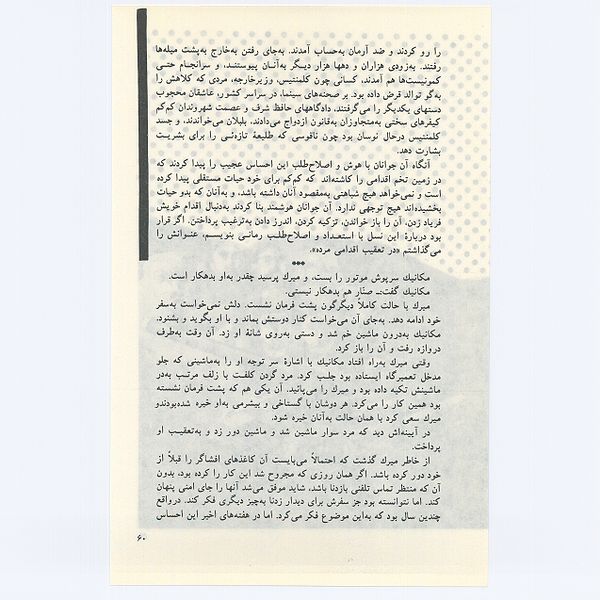 را رو کردند و ضد آرمان به‌حساب آمدند. به‌جای رفتن به‌خارج به‌پشت میله‌ها
رفتند. به‌زودی هزاران و دهها هزار دیگر به‌آنان پیوستند، و سرانجام حتی
کمونیست‌ها هم آمدند، کسانی چون کلمنتیس، وزیرخارجه، مردی که کلاهش را
به‌گو توالد قرض داده بود. بر صحنه‌های سینما، در سراسر کشور، عاشقان محجوب
دستهای یکدیگر را می‌گرفتند، دادگاههای حافظ شرف و عصمت شهروندان کم‌کم
کیفرهای سختی به‌متجاوزان به‌قانون ازدواج می‌دادند، بلبلان می‌خواندند، و جسد
کلمنتیس درحال نوسان بود چون ناقوسی که طلیعهٔ تازه‌ئی را برای بشریت
بشارت دهد.
آنگاه آن جوانان با هوش و اصلاح‌طلب این احساس عجیب را پیدا کردند که
در زمین تخم اقدامی را کاشته‌اند که کم‌کم برای خود حیات مستقلی پیدا کرده
است و نمی‌خواهد هیچ شباهتی به‌مقصود آنان داشته باشد، و به‌آنان که بدو حیات
بخشیده‌اند هیچ توجهی ندارد. آن جوانان هوشمند بنا کردند به‌دنبال اقدام خویش
فریاد زدن، آن را باز خواندن، تزکیه کردن، اندرز دادن به‌ترغیب پرداختن. اگر قرار
بود دربارهٔ این نسل با استعداد و اصلاح‌طلب رمانی بنویسم، عنوانش را
می‌گذاشتم «در تعقیب اقدامی مرده».
***
مکانیک سرپوش موتور را بست، و میرك پرسید چقدر به‌او بدهکار است.
مکانیک گفت- صنّار هم بدهکار نیستی.
میرك با حالت کاملاً دیگرگون پشت فرمان نشست. دلش نمی‌خواست به‌سفر
خود ادامه دهد. به‌جای آن می‌خواست کنار دوستش بماند و با او بگوید و بشنود.
مکانیک به‌درون ماشین خم شد و دستی به‌روی شانهٔ او زد. آن وقت به‌طرف
دروازه رفت و آن را باز کرد.
وقتی میرك به‌راه افتاد مکانیک با اشارهٔ سر توجه او را به‌ماشینی که جلو
مدخل تعمیرگاه ایستاده بود جلب کرد. مرد گردن کلفت با زلف مرتب به‌در
ماشینش تکیه داده بود و میرك را می‌پائید. آن یکی هم که پشت فرمان نشسته
بود همین کار را می‌کرد. هر دوشان با گستاخی و بیشرمی به‌او خیره شده‌بودندو
میرك سعی کرد با همان حالت به‌آنان خیره شود.
در آیینه‌اش دید که مرد سوار ماشین شد و ماشین دور زد و به‌تعقیب او
پرداخت.
از خاطر میرك گذشت که احتمالاً می‌بایست آن کاغذهای افشاگر را قبلاً از
خود دور کرده باشد. اگر همان روزی که مجروح شد این کار را کرده بود، بدون
آن که منتظر تماس تلفنی بازدنا باشد، شاید موفق می‌شد آنها را جای امنی پنهان
کند. اما نتوانسته بود جز سفرش برای دیدار زدنا به‌چیز دیگری فکر کند. درواقع
چندین سال بود که به‌این موضوع فکر می‌کرد. اما در هفته‌های اخیر این احساس
۶۰